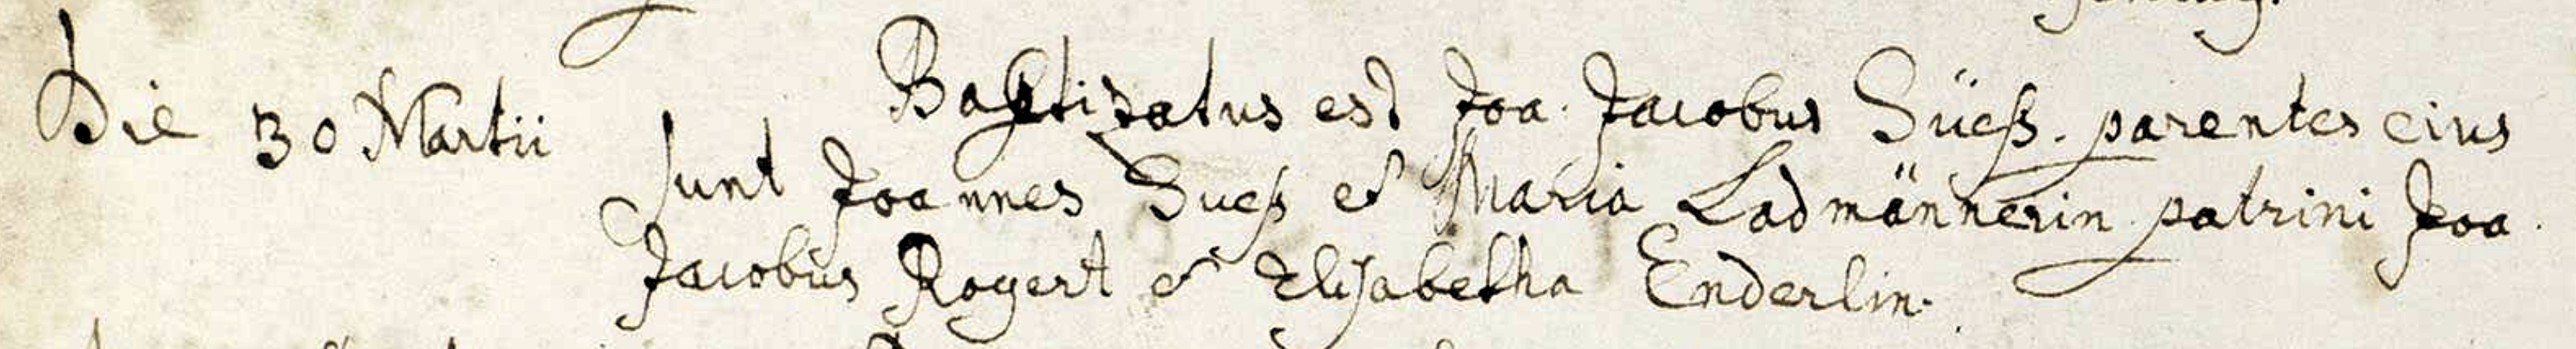 Die 30 Martii Baptizatus est Joa. Jacobus Süeß. parentes eius
sunt Joannes Sueß et Maria Ladmännerin patrini Joa.
Jacobus Rogert et Elisabetha Enderlin.